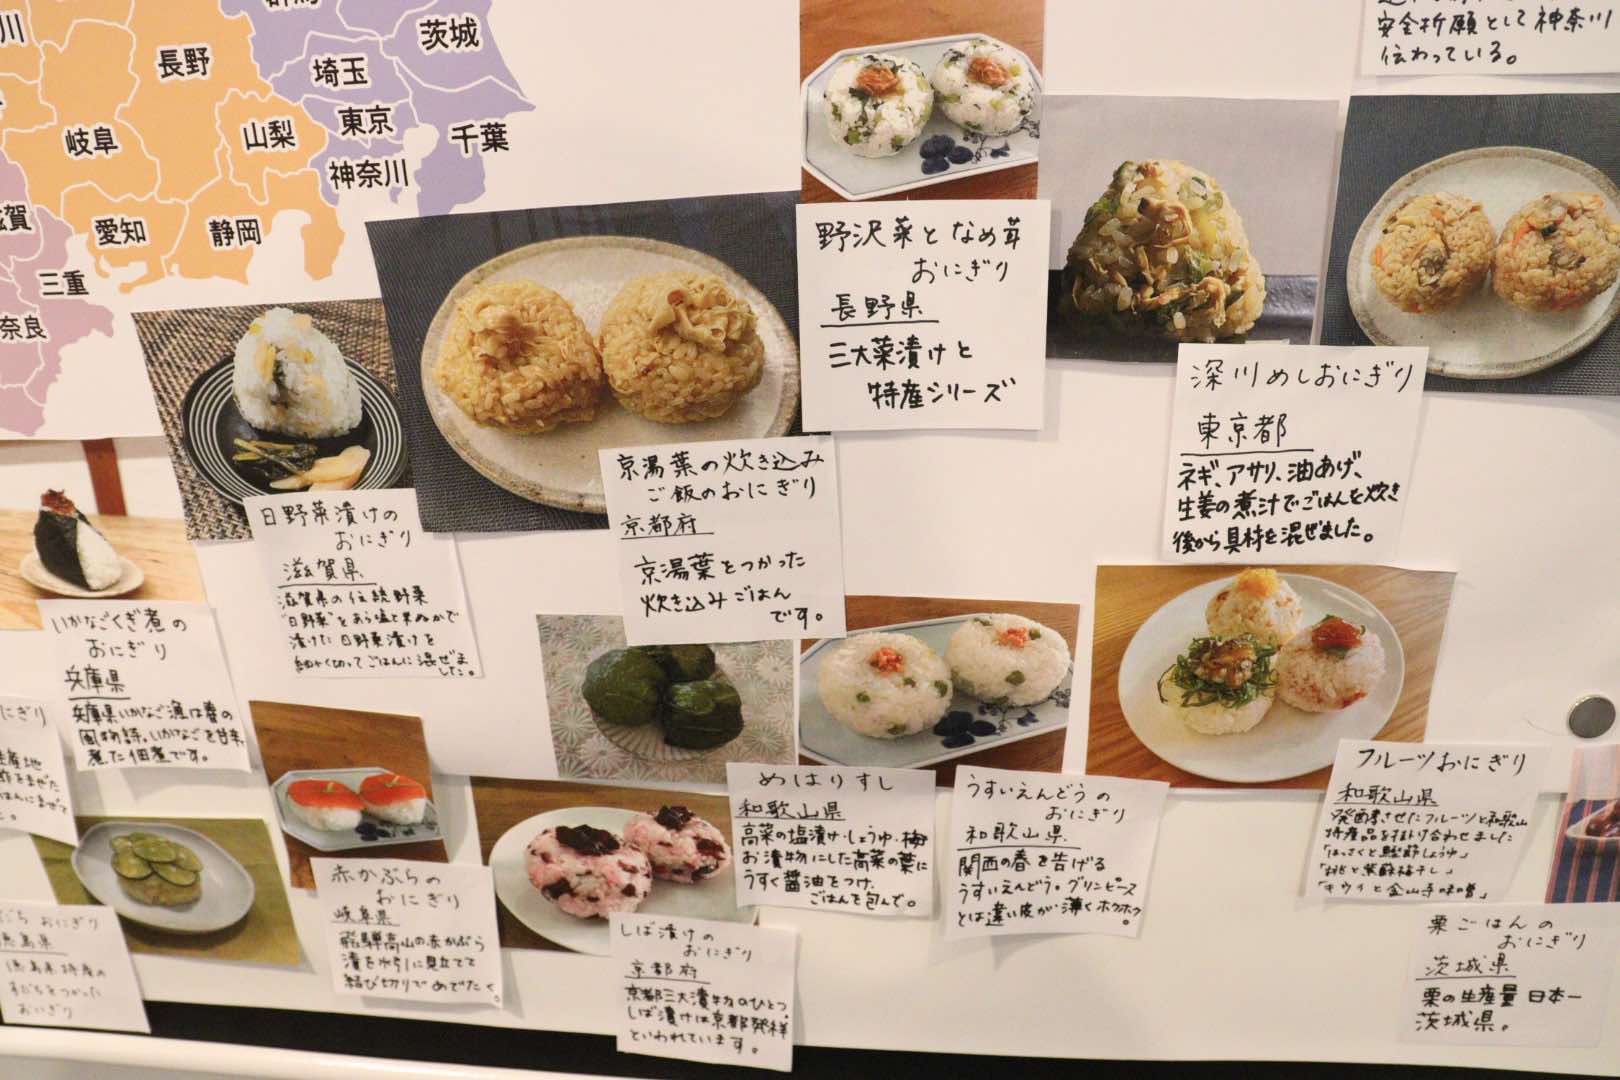 茨城
長野
埼玉
東京
岐阜
山梨
千葉
神奈川
愛知
静岡
滋賀
三重
奈良
安全祈願として神奈川
伝わっている。
野沢菜となめ茸
おにぎり
長野県
三大菜漬けと
特産シリーズ
深川めしおにぎり
東京都
ネギ、アサリ、油あげ、
生姜の煮汁でごはんを炊き
後から具材を混ぜました。
京湯葉の炊き込み
ご飯のおにぎり
京都府
京湯葉をつかった
炊き込みごはん
です。
日野菜漬けの
おにぎり
滋賀県
滋賀県の伝統野菜
"日野菜"をあら塩と米ぬかで
漬けた日野菜漬けを
細かく切ってごはんに混ぜま
した。
いかなごくぎ煮の
おにぎり
兵庫県
兵庫県いかなご漁は春の
風物詩。いかなごを甘辛く
煮た佃煮です。
にぎり
めはりすし
和歌山県
高菜の塩漬け・しょうゆ・梅
お漬物にした高菜の葉に
うすく醤油をつけ、
ごはんを包んで。
うすいえんどうの
おにぎり
和歌山県
関西の春を告げる
うすいえんどう。グリンピース
とは違い皮が薄くホクホク
。
フルーツおにぎり
和歌山県
発酵させたフルーツと和歌山
特産品を採り合わせました
「はっさくと鰹節しょうゆ」
「桃と紫蘇梅干し」
「キウイと金山寺味噌」
赤かぶらの
おにぎり
岐阜県
飛騨高山の赤かぶら
漬を水引に見立てて
結び切りでめでたく。
しば漬けの
おにぎり
京都府
京都三大漬物のひとつ。
しば漬けは京都発祥
といわれています。
栗ごはんの
おにぎり
茨城県
栗の生産量 日本一
茨城県。
だち おにぎり
徳島県
徳島県特産の
すだちをつかった
おにぎり